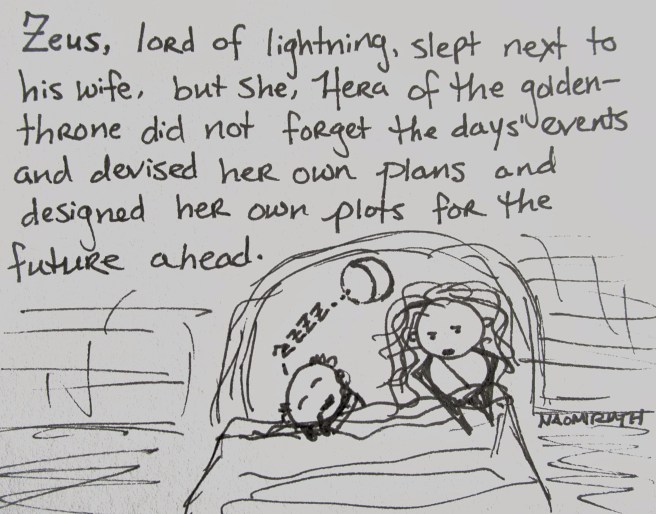 Zeus, lord of lightning, slept next to
his wife, but she, Hera of the golden-
throne did not forget the days' events
and devised her own plans and
designed her own plots for the
future ahead.
ZZZZ...
NAOMIRUTH